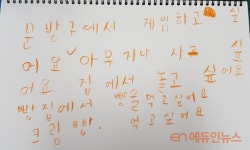 문방구에서 제일하고 싶
어요 아무거나 사고 싶어요
어요 집에서 놀고
빵집에서 빵을 먹고 싶어요
크림 빵. 먹고 싶어요
en 에듀인뉴스